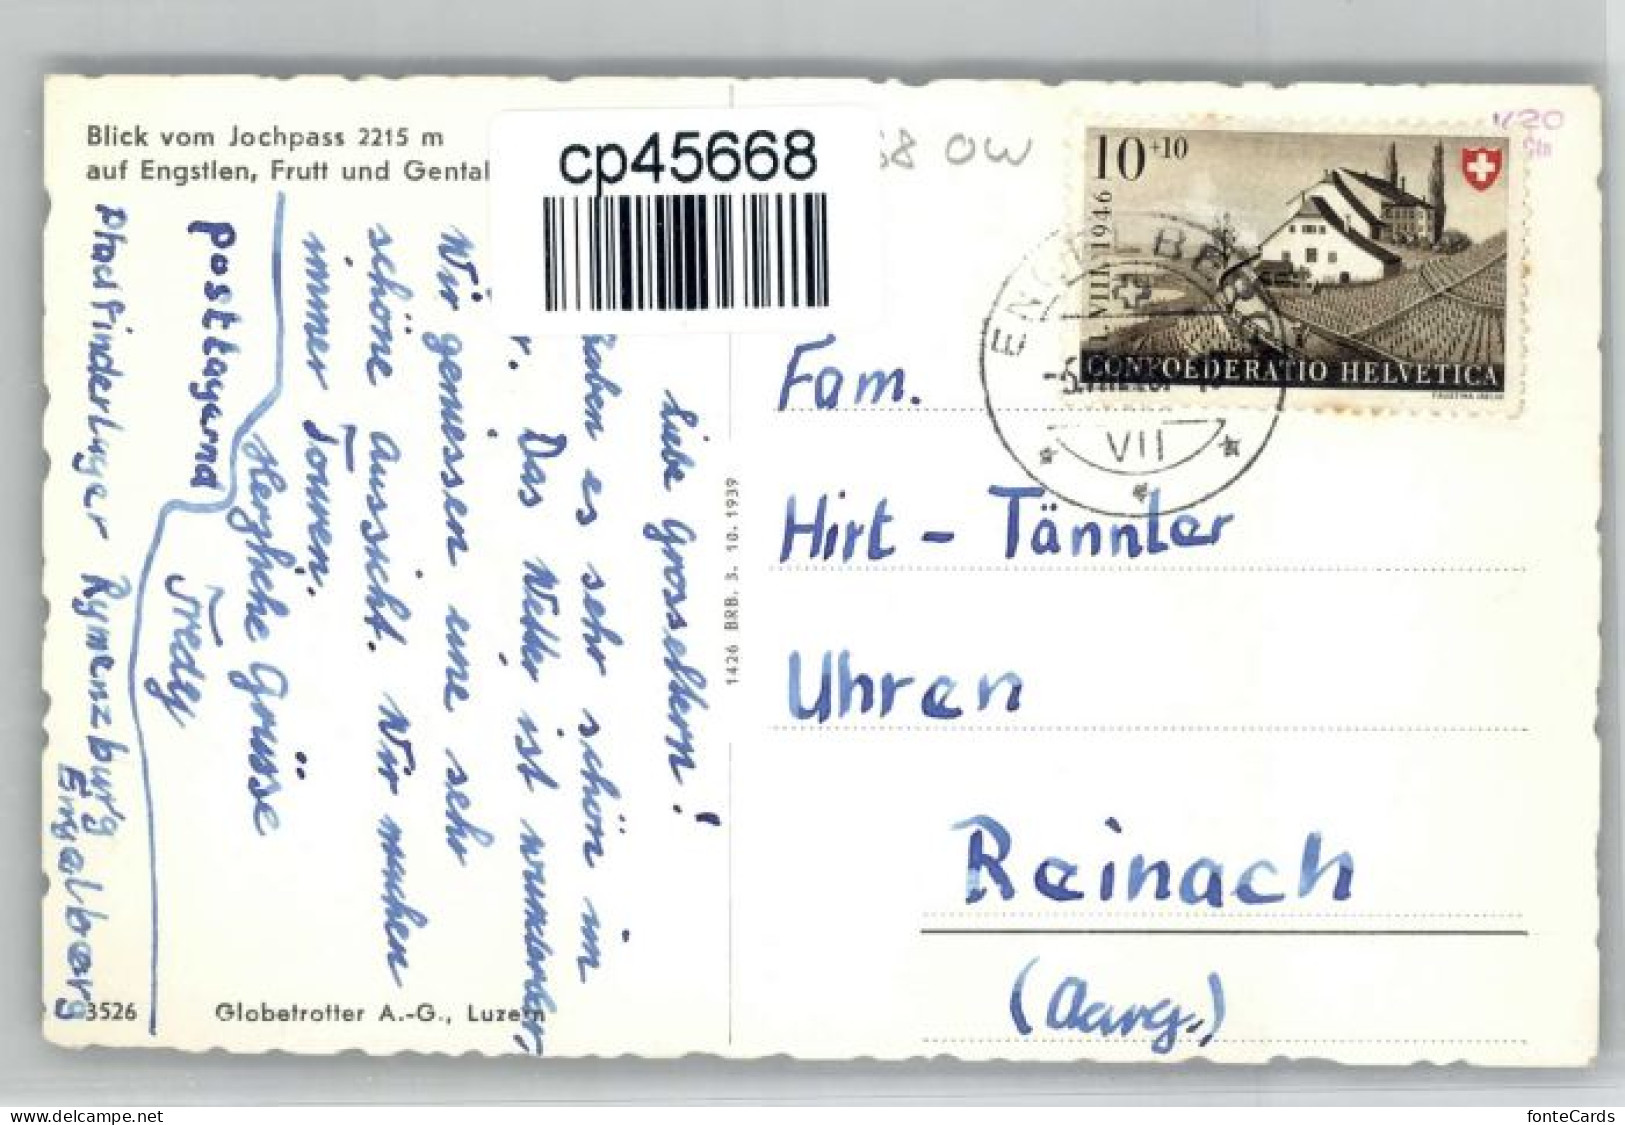 Blick vom Jochpass 2215 m
auf Engstlen, Frutt und Gental
cp45668
68 OW
10+10
1. VIII. 1946
CONFOEDERATIO HELVETICA
ENGELBERG
VII
Liebe Grosseltern!
haben es sehr schön im
Das Wetter ist wunderbar,
Wir geniessen eine sehr
schöne Aussicht. Wir machen
immer Touren.
Herzliche Grüsse
Fredy
postlagernd
Pfadfinderlager Rymenzburg
Engelberg
1426 BRB. 3. 10. 1939
Fam.
Hirt - Tännler
Uhren
Reinach
(Aarg.)
3526 Globetrotter A.-G., Luzern
www.delcampe.net
fonteCards